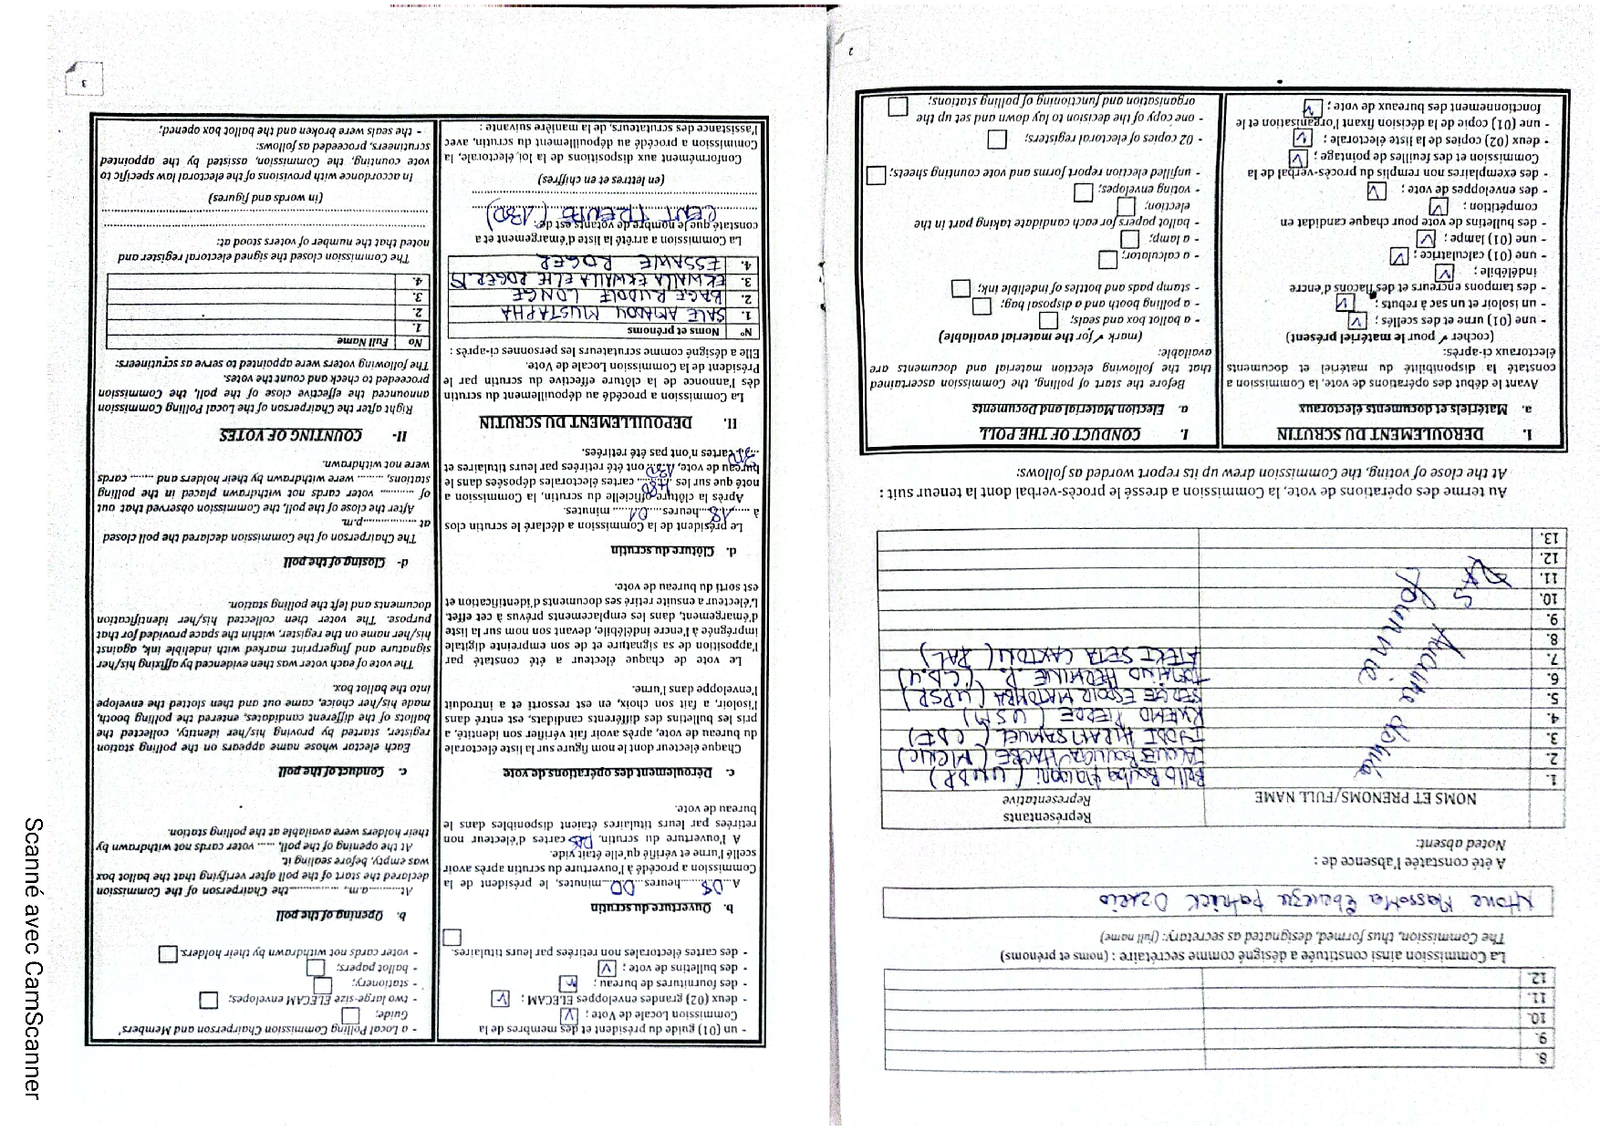 8.
9.
10.
11.
12.
La Commission ainsi constituée a désigné comme secrétaire : (noms et prénoms)
The Commission, thus formed, designated as secretary: (full name)
Massoma Ebenezer Patrick
A été constatée l'absence de :
Noted absent:
NOMS ET PRENOMS/FULL NAME
Représentants
Representative
1. Bello Bouba (UNDP)
2. JACQUES (MCNC)
3. HIRAM SAMUEL (BE)
4. KWEMO PIERRE (UMS)
5. SERGE ESPOIR MATOMBA (UPSR)
6. TOMAINO HERMINE P. (UDC)
7. ATEKI SETA CAXTON (PAL)
8.
9.
10.
11.
12.
13.
Aucune donnée
fournie
Au terme des opérations de vote, la Commission a dressé le procès-verbal dont la teneur suit :
At the close of voting, the Commission drew up its report worded as follows:
I. DEROULEMENT DU SCRUTIN
a. Matériels et documents électoraux
Avant le début des opérations de vote, la Commission a
constaté la disponibilité du matériel et documents
électoraux ci-après:
(cocher ✓ pour le matériel présent)
- une (01) urne et des scellés ;
- un isoloir et un sac à rebuts ;
- des tampons encreurs et des flacons d'encre
indélébile ;
- une (01) calculatrice ;
- une (01) lampe ;
- des bulletins de vote pour chaque candidat en
compétition ;
- des enveloppes de vote ;
- des exemplaires non remplis du procès-verbal de la
Commission et des feuilles de pointage ;
- deux (02) copies de la liste électorale ;
- une (01) copie de la décision fixant l'organisation et le
fonctionnement des bureaux de vote ;
I. CONDUCT OF THE POLL
a. Election Material and Documents
Before the start of polling, the Commission ascertained
that the following election material and documents are
available:
(mark ✓ for the material available)
- a ballot box and seals;
- a polling booth and a disposal bag;
- stamp pads and bottles of indelible ink;
- a calculator;
- a lamp;
- ballot papers for each candidate taking part in the
election;
- voting envelopes;
- unfilled election report forms and vote counting sheets;
- 02 copies of electoral registers;
- one copy of the decision to lay down and set up the
organisation and functioning of polling stations;
2
- un (01) guide du président et des membres de la
Commission Locale de Vote ;
- deux (02) grandes enveloppes ELECAM ;
- des fournitures de bureau ;
- des bulletins de vote ;
- des cartes électorales non retirées par leurs titulaires.
b. Ouverture du scrutin
A 08 heures 00 minutes, le président de la
Commission a procédé à l'ouverture du scrutin après avoir
scellé l'urne et vérifié qu'elle était vide.
A l'ouverture du scrutin, cartes d'électeur non
retirées par leurs titulaires étaient disponibles dans le
bureau de vote.
c. Déroulement des opérations de vote
Chaque électeur dont le nom figure sur la liste électorale
du bureau de vote, après avoir fait vérifier son identité, a
pris les bulletins des différents candidats, est entré dans
l'isoloir, a fait son choix, en est ressorti et a introduit
l'enveloppe dans l'urne.
Le vote de chaque électeur a été constaté par
l'apposition de sa signature et de son empreinte digitale
imprégnée à l'encre indélébile, devant son nom sur la liste
d'émargement, dans les emplacements prévus à cet effet.
L'électeur a ensuite retiré ses documents d'identification et
est sorti du bureau de vote.
d. Clôture du scrutin
Le président de la Commission a déclaré le scrutin clos
à 18 heures 01 minutes.
Après la clôture officielle du scrutin, la Commission a
noté que sur les 480 cartes électorales déposées dans le
bureau de vote, 130 ont été retirées par leurs titulaires et
350 cartes n'ont pas été retirées.
II. DEPOUILLEMENT DU SCRUTIN
La Commission a procédé au dépouillement du scrutin
dès l'annonce de la clôture effective du scrutin par le
Président de la Commission Locale de Vote.
Elle a désigné comme scrutateurs les personnes ci-après :
N° Noms et prénoms
1. SALE AMADOU MUSTAPHA
2. BAGE RUDOLF LONGE
3. EKWALLA EKWALLA ELIE ROGERS
4. ESSAME ROGER
La Commission a arrêté la liste d'émargement et a
constaté que le nombre de votants est de:
CENT TRENTE (130)
(en lettres et en chiffres)
Conformément aux dispositions de la loi électorale, la
Commission a procédé au dépouillement du scrutin, avec
l'assistance des scrutateurs, de la manière suivante :
- a Local Polling Commission Chairperson and Members'
Guide;
- two large-size ELECAM envelopes;
- stationery;
- ballot papers;
- voter cards not withdrawn by their holders;
b. Opening of the poll
At..........a.m, .............the Chairperson of the Commission
declared the start of the poll after verifying that the ballot box
was empty, before sealing it.
At the opening of the poll, ...... voter cards not withdrawn by
their holders were available at the polling station.
c. Conduct of the poll
Each elector whose name appears on the polling station
register, started by proving his/her identity, collected the
ballots of the different candidates, entered the polling booth,
made his/her choice, came out and then slotted the envelope
into the ballot box.
The vote of each voter was then evidenced by affixing his/her
signature and fingerprint marked with indelible ink, against
his/her name on the register, within the space provided for that
purpose. The voter then collected his/her identification
documents and left the polling station.
d- Closing of the poll
The Chairperson of the Commission declared the poll closed
at ..................p.m.
After the close of the poll, the Commission observed that out
of .......... voter cards not withdrawn placed in the polling
stations, ........ were withdrawn by their holders and ........ cards
were not withdrawn.
II- COUNTING OF VOTES
Right after the Chairperson of the Local Polling Commission
announced the effective close of the poll, the Commission
proceeded to check and count the votes.
The following voters were appointed to serve as scrutineers:
No Full Name
1.
2.
3.
4.
The Commission closed the signed electoral register and
noted that the number of voters stood at:
(in words and figures)
In accordance with provisions of the electoral law specific to
vote counting, the Commission, assisted by the appointed
scrutineers, proceeded as follows:
- the seals were broken and the ballot box opened;
3
Scanné avec CamScanner